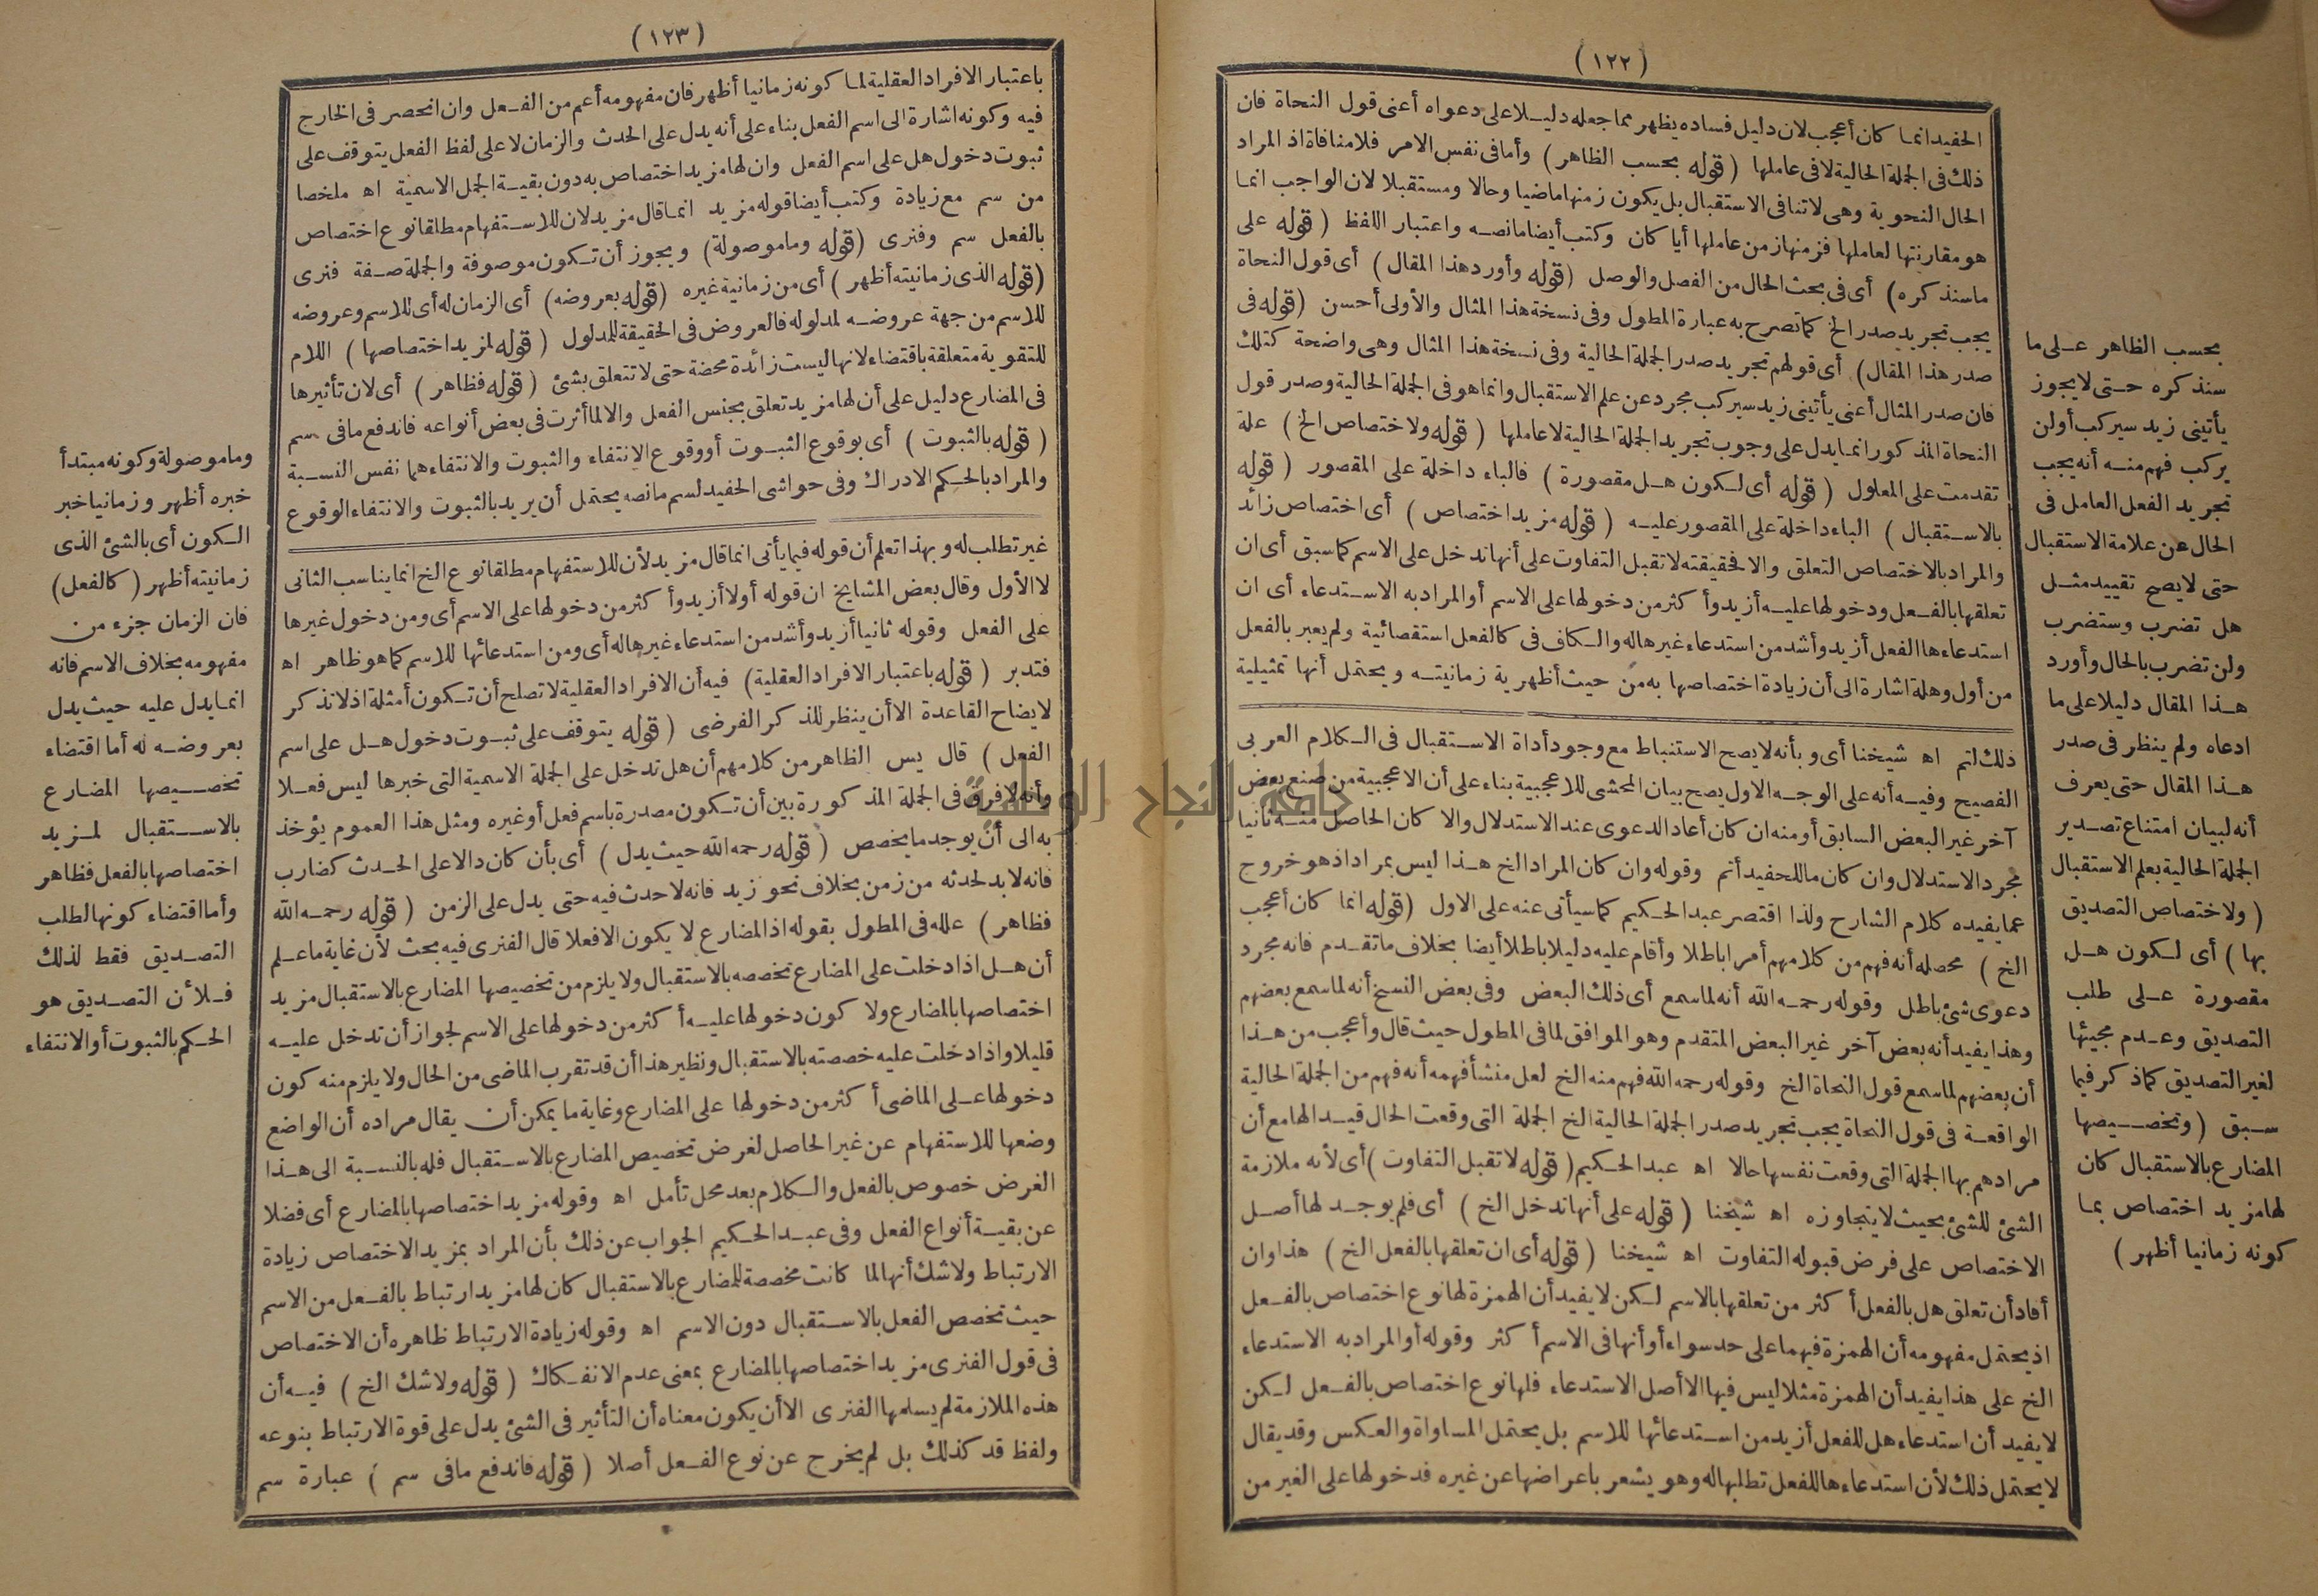 (١٢٢)
الحفيد انما كان أعجب لان دليل فساده يظهر مما جعله دليلا على دعواه أعنى قول النحاة فان
ذلك فى الجملة الحالية لا فى عاملها (قوله بحسب الظاهر) وأما فى نفس الامر فلا منافاة اذ المراد
الحال النحوية وهى لا تنافى الاستقبال بل يكون زمنها ماضيا وحالا ومستقبلا لان الواجب انما
هو مقارنتها لعاملها فزمنها زمن عاملها أيا كان وكتب أيضا مانصه واعتبار اللفظ (قوله على
ماسنذكره) أى فى بحث الحال من الفصل والوصل (قوله وأورد هذا المقال) أى قول النحاة
يجب تجريد صدر الخ كما تصرح به عبارة المطول وفى نسخة هذا المثال والأولى أحسن (قوله فى
صدر هذا المقال) أى قولهم تجريد صدر الجملة الحالية وفى نسخة هذا المثال وهى واضحة كتلك
فان صدر المثال أعنى يأتينى زيد سيركب مجرد عن علم الاستقبال وانما هو فى الجملة الحالية وصدر قول
النحاة المذكور انما يدل على وجوب تجريد الجملة الحالية لا عاملها (قوله ولاختصاص الخ) علة
تقدمت على المعلول (قوله أى لكون هل مقصورة) فالباء داخلة على المقصور (قوله
بالاستقبال) الباء داخلة على المقصور عليه (قوله مزيد اختصاص) أى اختصاص زائد
والمراد بالاختصاص التعلق والا فحقيقته لا تقبل التفاوت على أنها تدخل على الاسم كما سبق أى ان
تعلقها بالفعل ودخولها عليه أزيد وأكثر من دخولها على الاسم أو المراد به الاستدعاء أى ان
استدعاءها الفعل أزيد وأشد من استدعاء غيرها له والكاف فى كالفعل استقصائية ولم يعبر بالفعل
من أول وهلة اشارة الى أن زيادة اختصاصها به من حيث أظهرية زمانيته ويحتمل أنها تمثيلية
ذلك لتم اه شيخنا أى وبأنه لا يصح الاستنباط مع وجود أداة الاستقبال فى الكلام العربى
الفصيح وفيه أنه على الوجه الاول يصح بيان المحشى للاعجبية بناء على أن الاعجبية من صنع بعض
آخر غير البعض السابق أو منه ان كان أعاد الدعوى عند الاستدلال والا كان الحاصل منه ثانيا
مجرد الاستدلال وان كان ما للحفيد أتم وقوله وان كان المراد الخ هذا ليس بمراد اذ هو خروج
عما يفيده كلام الشارح ولذا اقتصر عبد الحكيم كما سيأتى عنه على الاول (قوله انما كان أعجب
الخ) محصله أنه فهم من كلامهم أمرا باطلا وأقام عليه دليلا باطلا أيضا بخلاف ما تقدم فانه مجرد
دعوى شئ باطل وقوله رحمه الله أنه لما سمع أى ذلك البعض وفى بعض النسخ أنه لما سمع بعضهم
وهذا يفيد أنه بعض آخر غير البعض المتقدم وهو الموافق لما فى المطول حيث قال وأعجب من هذا
أن بعضهم لما سمع قول النحاة الخ وقوله رحمه الله فهم منه الخ لعل منشأ فهمه أنه فهم من الجملة الحالية
الواقعة فى قول النحاة يجب تجريد صدر الجملة الحالية الخ الجملة التى وقعت الحال قيدا لها مع أن
مرادهم بها الجملة التى وقعت نفسها حالا اه عبد الحكيم (قوله لا تقبل التفاوت) أى لأنه ملازمة
الشئ للشئ بحيث لا يتجاوزه اه شيخنا (قوله على أنها تدخل الخ) أى فلم يوجد لها أصل
الاختصاص على فرض قبوله التفاوت اه شيخنا (قوله أى ان تعلقها بالفعل الخ) هذا وان
أفاد أن تعلق هل بالفعل أكثر من تعلقها بالاسم لكن لا يفيد أن الهمزة لها نوع اختصاص بالفعل
اذ يحتمل مفهومه أن الهمزة فيهما على حد سواء أو أنها فى الاسم أكثر وقوله أو المراد به الاستدعاء
الخ على هذا يفيد أن الهمزة مثلا ليس فيها الا أصل الاستدعاء فلها نوع اختصاص بالفعل لكن
لا يفيد أن استدعاء هل للفعل أزيد من استدعائها للاسم بل يحتمل المساواة والعكس وقد يقال
لا يحتمل ذلك لأن استدعاءها للفعل تطلبها له وهو يشعر باعراضها عن غيره فدخولها على الغير من
بحسب الظاهر على ما
سنذكره حتى لا يجوز
يأتينى زيد سيركب أولن
يركب فهم منه أنه يجب
تجريد الفعل العامل فى
الحال عن علامة الاستقبال
حتى لا يصح تقييد مثل
هل تضرب وستضرب
ولن تضرب بالحال وأورد
هذا المقال دليلا على ما
ادعاه ولم ينظر فى صدر
هذا المقال حتى يعرف
أنه لبيان امتناع تصدير
الجملة الحالية بعلم الاستقبال
(ولاختصاص التصديق
بها) أى لكون هل
مقصورة على طلب
التصديق وعدم مجيئها
لغير التصديق كما ذكر فيما
سبق (وتخصيصها
المضارع بالاستقبال كان
لها مزيد اختصاص بما
كونه زمانيا أظهر)
(١٢٣)
باعتبار الافراد العقلية لما كونه زمانيا أظهر فان مفهومه أعم من الفعل وان انحصر فى الخارج
فيه وكونه اشارة الى اسم الفعل بناء على أنه يدل على الحدث والزمان لا على لفظ الفعل يتوقف على
ثبوت دخول هل على اسم الفعل وان لها مزيد اختصاص به دون بقية الجمل الاسمية اه ملخصا
من سم مع زيادة وكتب أيضا قوله مزيد انما قال مزيد لان للاستفهام مطلقا نوع اختصاص
بالفعل سم وفنرى (قوله وما موصولة) ويجوز أن تكون موصوفة والجملة صفة فنرى
(قوله الذى زمانيته أظهر) أى من زمانية غيره (قوله بعروضه) أى الزمان له أى للاسم وعروضه
للاسم من جهة عروضه لمدلوله فالعروض فى الحقيقة للمدلول (قوله لمزيد اختصاصها) اللام
للتقوية متعلقة باقتضاء لانها ليست زائدة محضة حتى لا تتعلق بشئ (قوله فظاهر) أى لان تأثيرها
فى المضارع دليل على أن لها مزيد تعلق بجنس الفعل والا لما أثرت فى بعض أنواعه فاندفع ما فى سم
(قوله بالثبوت) أى بوقوع الثبوت أو وقوع الانتفاء والثبوت والانتفاء هما نفس النسبة
والمراد بالحكم الادراك وفى حواشى الحفيد لسم ما نصه يحتمل أن يريد بالثبوت والانتفاء الوقوع
غير تطلب له وبهذا تعلم أن قوله فيما يأتى انما قال مزيد لأن للاستفهام مطلقا نوع الخ انما يناسب الثانى
لا الأول وقال بعض المشايخ ان قوله أولا أزيد وأكثر من دخولها على الاسم أى ومن دخول غيرها
على الفعل وقوله ثانيا أزيد وأشد من استدعاء غيرها له أى ومن استدعائها للاسم كما هو ظاهر اه
فتدبر (قوله باعتبار الافراد العقلية) فيه أن الافراد العقلية لا تصلح أن تكون أمثلة اذ لا تذكر
لايضاح القاعدة الا أن ينظر للذكر الفرضى (قوله يتوقف على ثبوت دخول هل على اسم
الفعل) قال يس الظاهر من كلامهم أن هل تدخل على الجملة الاسمية التى خبرها ليس فعلا
وأنه لا فرق فى الجملة المذكورة بين أن تكون مصدرة باسم فعل أو غيره ومثل هذا العموم يؤخذ
به الى أن يوجد ما يخصص (قوله رحمه الله حيث يدل) أى بأن كان دالا على الحدث كضارب
فانه لا بد لحدثه من زمن بخلاف نحو زيد فانه لا حدث فيه حتى يدل على الزمن (قوله رحمه الله
فظاهر) علله فى المطول بقوله اذ المضارع لا يكون الا فعلا قال الفنرى فيه بحث لأن غاية ما علم
أن هل اذا دخلت على المضارع تخصصه بالاستقبال ولا يلزم من تخصيصها المضارع بالاستقبال مزيد
اختصاصها بالمضارع ولا كون دخولها عليه أكثر من دخولها على الاسم لجواز أن تدخل عليه
قليلا واذا دخلت عليه خصصته بالاستقبال ونظير هذا أن قد تقرب الماضى من الحال ولا يلزم منه كون
دخولها على الماضى أكثر من دخولها على المضارع وغاية ما يمكن أن يقال مراده أن الواضع
وضعها للاستفهام عن غير الحاصل لغرض تخصيص المضارع بالاستقبال فله بالنسبة الى هذا
الغرض خصوص بالفعل والكلام بعد محل تأمل اه وقوله مزيد اختصاصها بالمضارع أى فضلا
عن بقية أنواع الفعل وفى عبد الحكيم الجواب عن ذلك بأن المراد بمزيد الاختصاص زيادة
الارتباط ولا شك أنها لما كانت مخصصة للمضارع بالاستقبال كان لها مزيد ارتباط بالفعل من الاسم
حيث تخصص الفعل بالاستقبال دون الاسم اه وقوله زيادة الارتباط ظاهره أن الاختصاص
فى قول الفنرى مزيد اختصاصها بالمضارع بمعنى عدم الانفكاك (قوله ولا شك الخ) فيه أن
هذه الملازمة لم يسلمها الفنرى الا أن يكون معناه أن التأثير فى الشئ يدل على قوة الارتباط بنوعه
ولفظ قد كذلك بل لم يخرج عن نوع الفعل أصلا (قوله فاندفع ما فى سم) عبارة سم
وما موصولة وكونه مبتدأ
خبره أظهر وزمانيا خبر
الكون أى بالشئ الذى
زمانيته أظهر (كالفعل)
فان الزمان جزء من
مفهومه بخلاف الاسم فانه
انما يدل عليه حيث يدل
بعروضه له أما اقتضاء
تخصيصها المضارع
بالاستقبال لمزيد
اختصاصها بالفعل فظاهر
وأما اقتضاء كونها لطلب
التصديق فقط لذلك
فلأن التصديق هو
الحكم بالثبوت أو الانتفاء
جامعة النجاح الوطنية